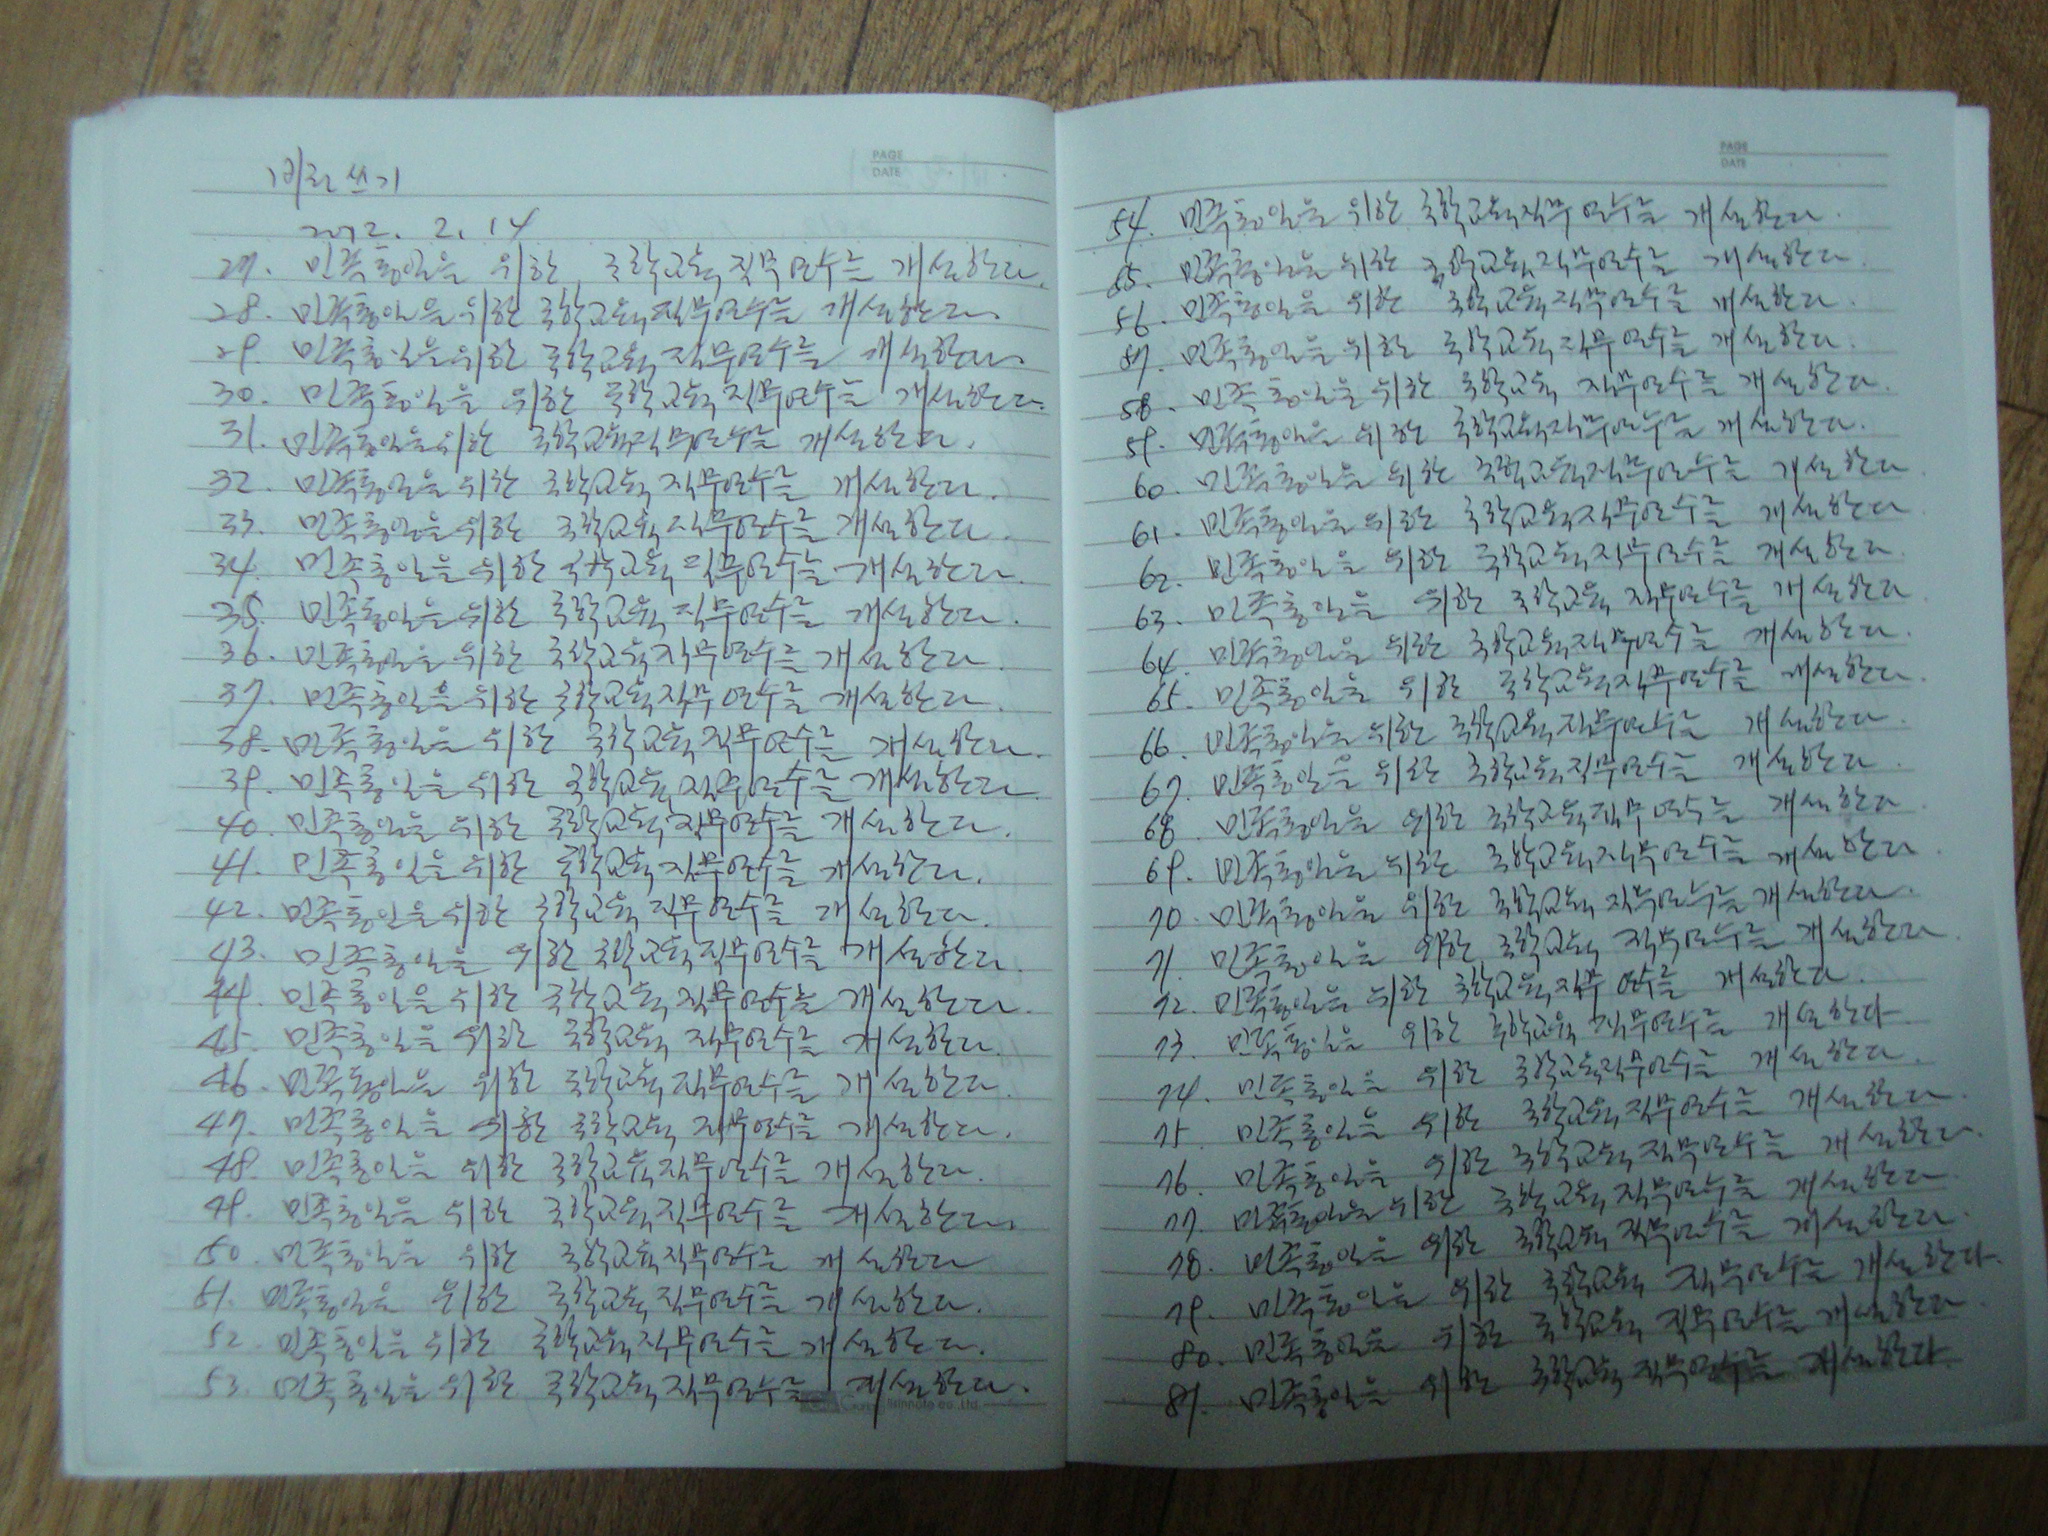 비젼 쓰기
2012. 2. 14
27. 민족통일을 위한 국학교육 직무연수를 개설한다.
28. 민족통일을 위한 국학교육 직무연수를 개설한다.
29. 민족통일을 위한 국학교육 직무연수를 개설한다.
30. 민족통일을 위한 국학교육 직무연수를 개설한다.
31. 민족통일을 위한 국학교육 직무연수를 개설한다.
32. 민족통일을 위한 국학교육 직무연수를 개설한다.
33. 민족통일을 위한 국학교육 직무연수를 개설한다.
34. 민족통일을 위한 국학교육 직무연수를 개설한다.
35. 민족통일을 위한 국학교육 직무연수를 개설한다.
36. 민족통일을 위한 국학교육 직무연수를 개설한다.
37. 민족통일을 위한 국학교육 직무연수를 개설한다.
38. 민족통일을 위한 국학교육 직무연수를 개설한다.
39. 민족통일을 위한 국학교육 직무연수를 개설한다.
40. 민족통일을 위한 국학교육 직무연수를 개설한다.
41. 민족통일을 위한 국학교육 직무연수를 개설한다.
42. 민족통일을 위한 국학교육 직무연수를 개설한다.
43. 민족통일을 위한 국학교육 직무연수를 개설한다.
44. 민족통일을 위한 국학교육 직무연수를 개설한다.
45. 민족통일을 위한 국학교육 직무연수를 개설한다.
46. 민족통일을 위한 국학교육 직무연수를 개설한다.
47. 민족통일을 위한 국학교육 직무연수를 개설한다.
48. 민족통일을 위한 국학교육 직무연수를 개설한다.
49. 민족통일을 위한 국학교육 직무연수를 개설한다.
50. 민족통일을 위한 국학교육 직무연수를 개설한다
51. 민족통일을 위한 국학교육 직무연수를 개설한다.
52. 민족통일을 위한 국학교육 직무연수를 개설한다.
53. 민족통일을 위한 국학교육 직무연수를 개설한다.
PAGE
DATE
PAGE
DATE
54. 민족통일을 위한 국학교육 직무연수를 개설한다.
55. 민족통일을 위한 국학교육 직무연수를 개설한다.
56. 민족통일을 위한 국학교육 직무연수를 개설한다.
57. 민족통일을 위한 국학교육 직무연수를 개설한다.
58. 민족통일을 위한 국학교육 직무연수를 개설한다.
59. 민족통일을 위한 국학교육 직무연수를 개설한다.
60. 민족통일을 위한 국학교육 직무연수를 개설한다.
61. 민족통일을 위한 국학교육 직무연수를 개설한다.
62. 민족통일을 위한 국학교육 직무연수를 개설한다.
63. 민족통일을 위한 국학교육 직무연수를 개설한다.
64. 민족통일을 위한 국학교육 직무연수를 개설한다.
65. 민족통일을 위한 국학교육 직무연수를 개설한다.
66. 민족통일을 위한 국학교육 직무연수를 개설한다.
67. 민족통일을 위한 국학교육 직무연수를 개설한다.
68. 민족통일을 위한 국학교육 직무연수를 개설한다
69. 민족통일을 위한 국학교육 직무연수를 개설한다.
70. 민족통일을 위한 국학교육 직무연수를 개설한다.
71. 민족통일을 위한 국학교육 직무연수를 개설한다.
72. 민족통일을 위한 국학교육 직무연수를 개설한다.
73. 민족통일을 위한 국학교육 직무연수를 개설한다.
74. 민족통일을 위한 국학교육 직무연수를 개설한다.
75. 민족통일을 위한 국학교육 직무연수를 개설한다.
76. 민족통일을 위한 국학교육 직무연수를 개설한다.
77. 민족통일을 위한 국학교육 직무연수를 개설한다.
78. 민족통일을 위한 국학교육 직무연수를 개설한다.
79. 민족통일을 위한 국학교육 직무연수를 개설한다.
80. 민족통일을 위한 국학교육 직무연수를 개설한다.
81. 민족통일을 위한 국학교육 직무연수를 개설한다.